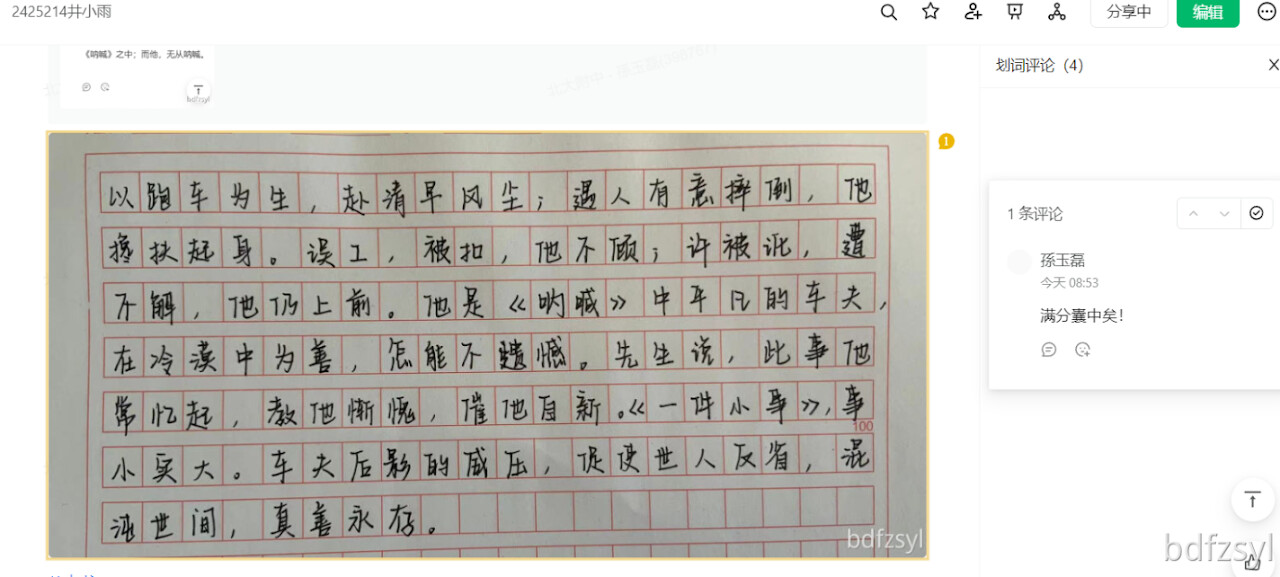 2425214井小雨
分享中
编辑
《呐喊》之中；而他，无从呐喊。
bdfzsyl
划词评论（4）
1
以跑车为生，赴清早风尘；遇人有意摔倒，他
搀扶起身。误工，被扣，他不顾；许被讹，遭
不解，他仍上前。他是《呐喊》中平凡的车夫，
在冷漠中为善，怎能不遗憾。先生说，此事他
常忆起，教他惭愧，催他自新。《一件小事》，事
100
小实大。车夫后影的威压，促使世人反省，混
沌世间，真善永存。
bdfzsyl
1 条评论
孫玉磊
今天 08:53
满分囊中矣！
bdfzsyl